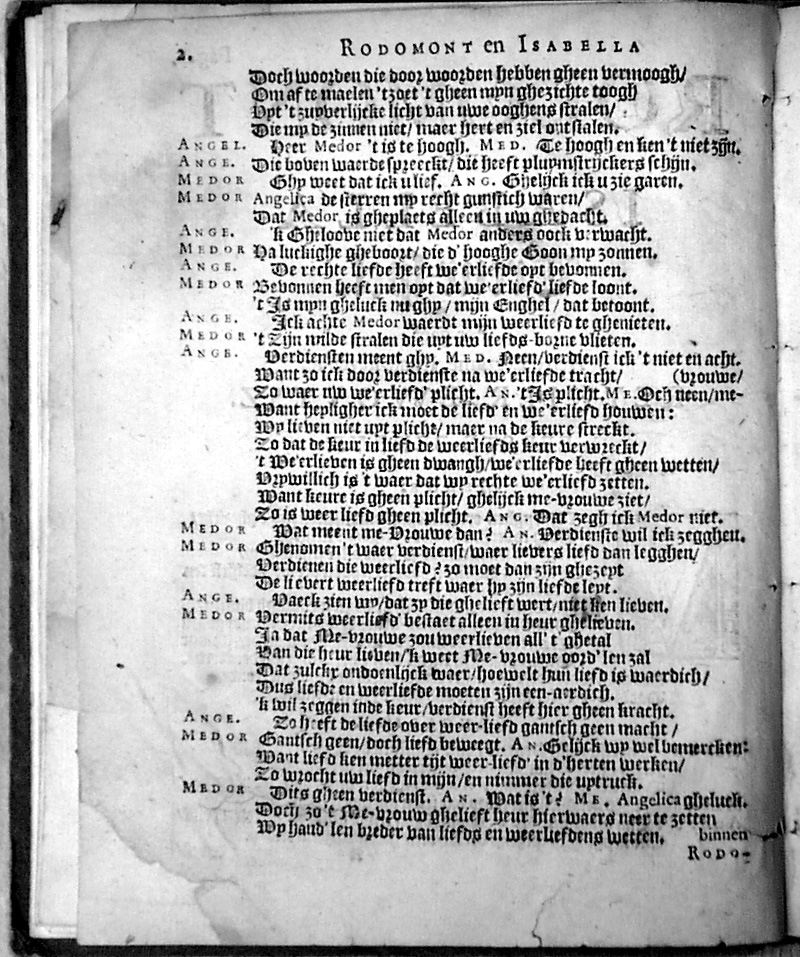 2. RODOMONT en ISABELLA
Doch woorden die door woorden hebben gheen vermoogh/
Om af te maelen 't zoet 't gheen myn ghezichte toogh
Vyt 't zuyverlijcke licht van uwe ooghens stralen/
Die my de zinnen niet/ maer hert en ziel ontstalen.
ANGEL. Heer Medor 't is te hoogh. MED. Te hoogh en ken 't niet zijn.
ANGE. Die boven waerde spreeckt/ die heeft pluymstryckers schijn.
MEDOR Ghy weet dat ick u lief. ANG. Ghelijck ick u zie garen.
MEDOR Angelica de sterren my recht gunstich waren/
Dat Medor is gheplaets alleen in uw ghedacht.
ANGE. 'k Gheloove niet dat Medor anders oock verwacht.
MEDOR Ha luckighe gheboort/ die d' hooghe Goon my zonnen.
ANGE. De rechte liefde heeft we'erliefde opt bevonnen.
MEDOR Bevonnen heeft men opt dat we'erliefd' liefde loont.
't Is myn gheluck nu ghy/ mijn Enghel/ dat betoont.
ANGE. Ick achte Medor waerdt mijn weerliefd te ghenieten.
MEDOR 't Zijn milde stralen die uyt uw liefds-borne vlieten.
ANGE. Verdiensten meent ghy. MED. Neen/ verdienst ick 't niet en acht.
Want zo ick door verdienste na we'erliefde tracht/ (vrouwe/
Zo waer uw we'erliefd' plicht. AN. 't Is plicht. ME. Och neen/ me-
Want heyligher ick moet de liefd' en we'erliefd houwen:
Wy lieven niet uyt plicht/ maer na de keure streckt.
Zo dat de keur in liefd de weerliefds keur verwreckt/
't We'erlieven is gheen dwangh/ we'erliefde heeft gheen wetten/
Vrywillich is 't waer dat wy rechte we'erliefd zetten.
Want keure is gheen plicht/ ghelijck me-vrouwe ziet/
Zo is weerliefd gheen plicht. ANG. Dat zegh ick Medor niet.
MEDOR Wat meent me-Vrouwe dan? AN. Verdienste wil ick zegghen.
MEDOR Ghenomen 't waer verdienst/ waer lievers liefd dan legghen/
Verdienen die weerliefd? zo moet dan zijn ghezeyt
De lievert weerliefd treft waer hy zijn liefde leyt.
ANGE. Vaeck zien wy/ dat zy die ghelieft wert/ niet ken lieven.
MEDOR Vermits weerliefd' bestaet alleen in heur ghelieven.
Ja dat Me-vrouwe zou weerlieven all' t' ghetal
Van die heur lieven/ 'k weet Me-vrouwe oord'len zal
Dat zulckx ondoenlijck waer/ hoewelt hun liefd is waerdich/
Dus liefde en weerliefde moeten zijn een-aerdich.
'k wil zeggen inde keur/ verdienst heeft hier gheen kracht.
ANGE. Zo heeft de liefde over weer-liefd gantsch geen macht/
MEDOR Gantsch geen/ doch liefd beweegt. AN. Gelijck wy wel bemercken:
Want liefd ken metter tijt weer-liefd' in d'herten werken/
Zo wrocht uw liefd in mijn/ en nimmer die uytruck.
MEDOR Dits gheen verdienst. AN. Wat is 't? ME. Angelica gheluck.
Doch zo 't Me-vrouw ghelieft heur hierwaers neer te zetten
Wy hand'len breder van liefds en weerliefdens wetten. binnen
RODO-